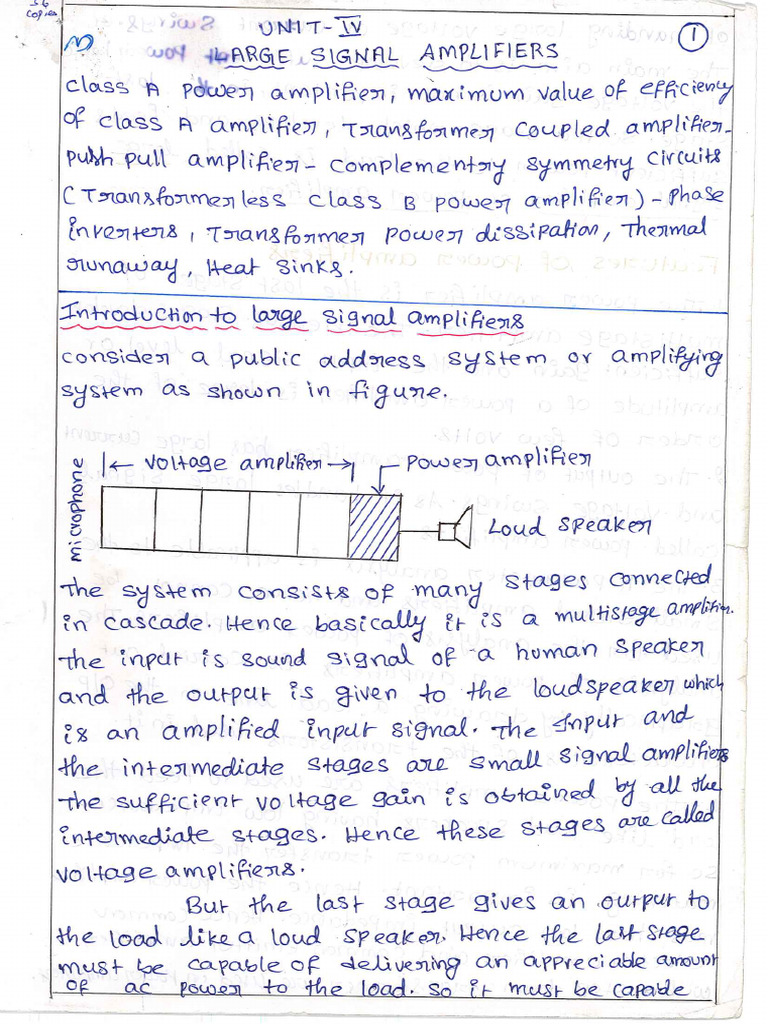 56
copies
UNIT-IV
1
LARGE SIGNAL AMPLIFIERS
class A power amplifier, maximum value of efficiency
of class A amplifier, Transformer coupled amplifier-
push pull amplifier - complementry symmetry circuits
(Transformerless class B power amplifier) - phase
inverters, Transformer power dissipation, Thermal
runaway, Heat sinks.
Introduction to large signal amplifiers
consider a public address system or amplifying
system as shown in figure.
voltage amplifier
power amplifier
microphone
Loud speaker
The system consists of many stages connected
in cascade. Hence basically it is a multistage amplifier.
The input is sound signal of a human speaker
and the output is given to the loudspeaker which
is an amplified input signal. The Input and
the intermediate stages are small signal amplifiers
The sufficient voltage gain is obtained by all the
intermediate stages. Hence these stages are called
voltage amplifiers.
But the last stage gives an output to
the load like a loud speaker. Hence the last stage
must be capable of delivering an appreciable amount
of ac power to the load. so it must be capable